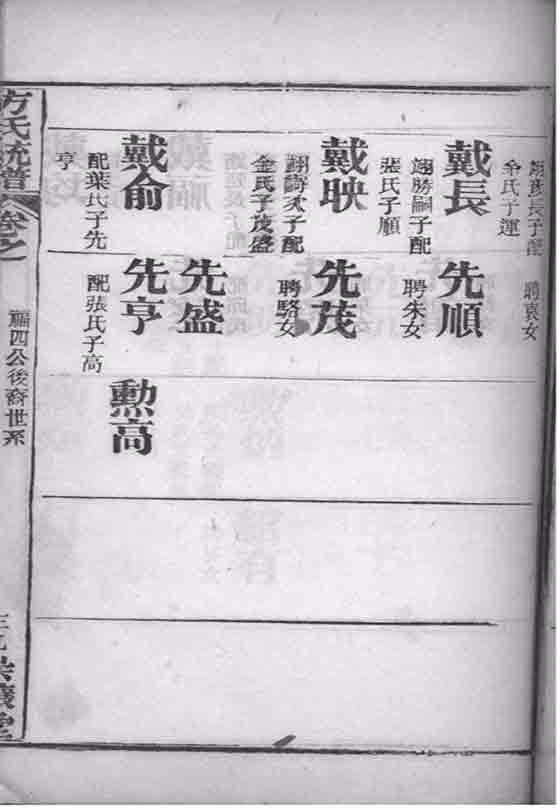 長子配
余氏子運
聘袁女
戴長
翅勝嗣子配
張氏子順
先順
聘朱女
戴映
次子配
金氏子茂盛
先茂
聘駱女
先盛
戴俞
配葉氏子先
亨
先亨
配張氏子高
勲高
方氏統譜
卷之
福四公後裔世系